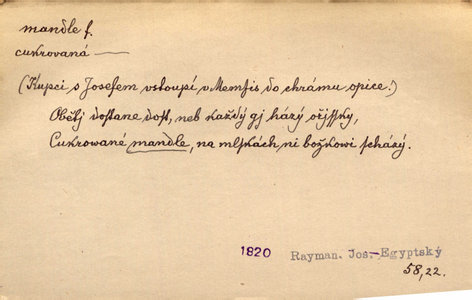 mandle f.
cukrovaná —
(Kupci s Josefem vstoupí v Memfis do chrámu opice.)
Obětj dostane dost, neb každý gj házý ořjssky,
Cukrované mandle, na mlskách ni božkowi scházý.
1820 Rayman. Jos. Egyptský
58,22.